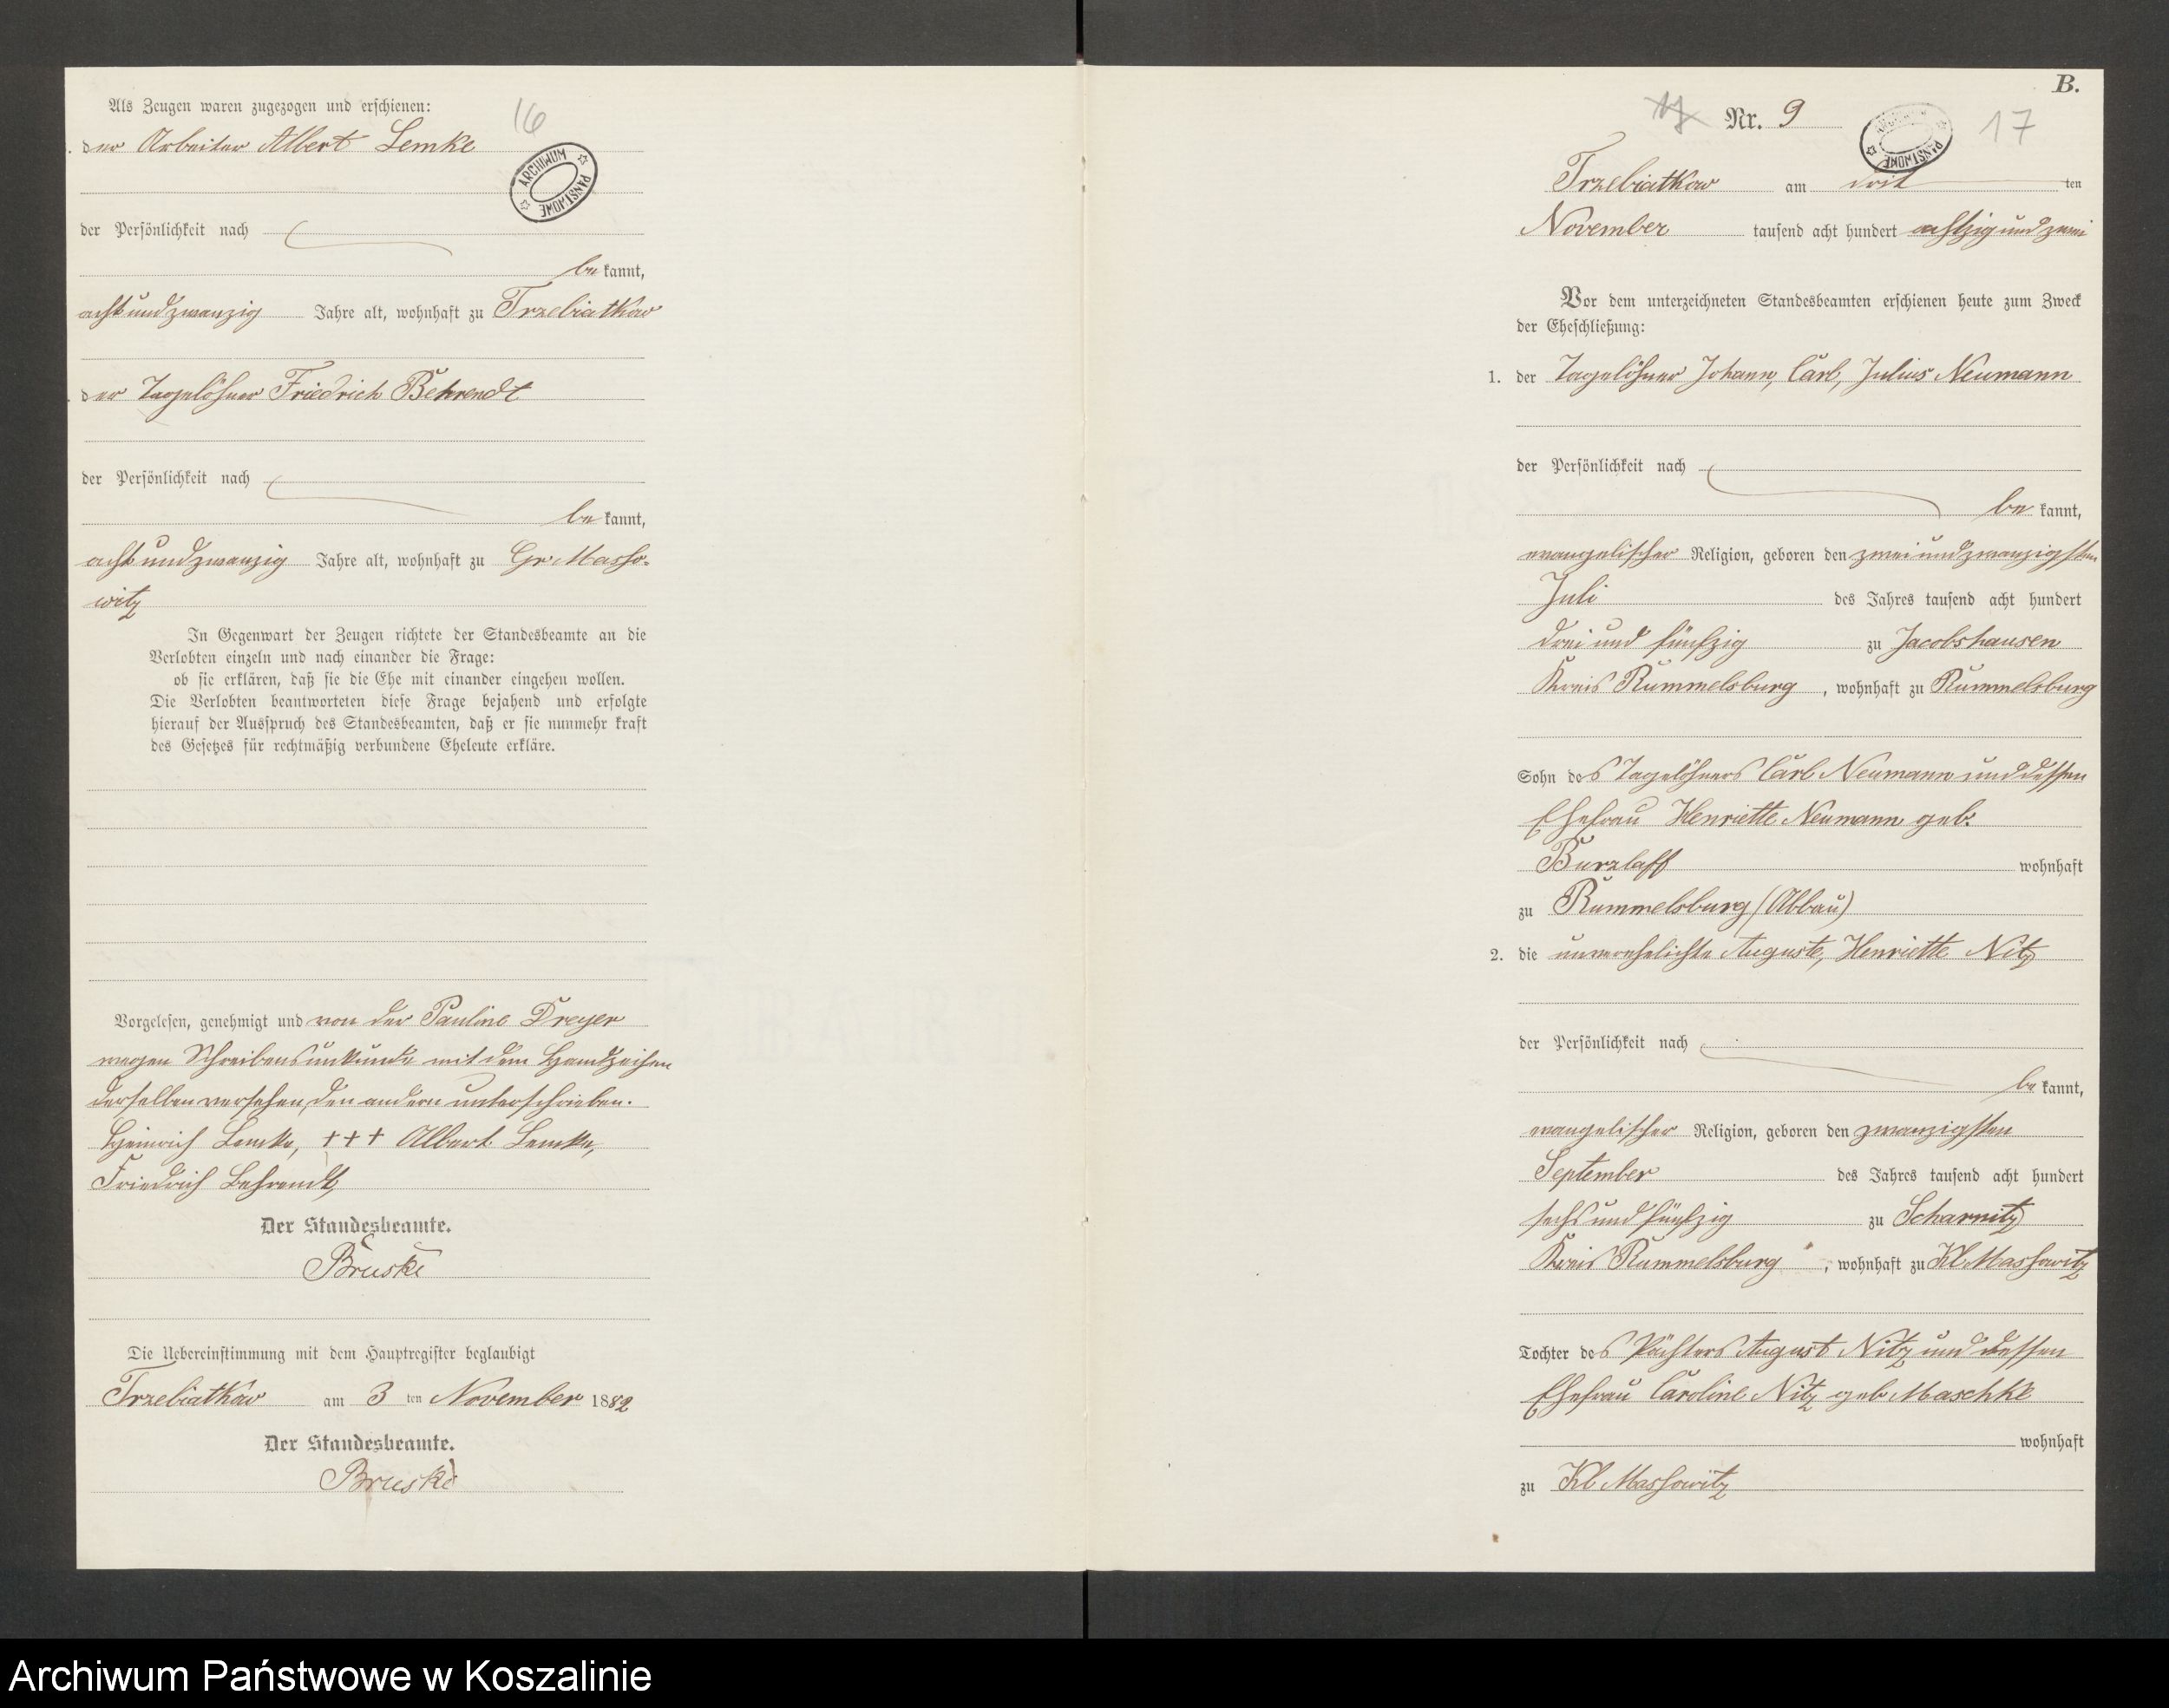 Als Zeugen waren zugezogen und erschienen:
16
der Arbeiter Albert Lemke
ARCHIWUM PAŃSTWOWE
der Persönlichkeit nach
be kannt,
acht und zwanzig Jahre alt, wohnhaft zu Trzebiatkow
der Tagelöhner Friedrich Behrendt
der Persönlichkeit nach
be kannt,
acht und zwanzig Jahre alt, wohnhaft zu Gr Masso-
witz
In Gegenwart der Zeugen richtete der Standesbeamte an die
Verlobten einzeln und nach einander die Frage:
ob sie erklären, daß sie die Ehe mit einander eingehen wollen.
Die Verlobten beantworteten diese Frage bejahend und erfolgte
hierauf der Ausspruch des Standesbeamten, daß er sie nunmehr kraft
des Gesetzes für rechtmäßig verbundene Eheleute erkläre.
Vorgelesen, genehmigt und von der Pauline Dreyer
wegen Schreibensunkunde mit dem Handzeichen
derselben versehen, den andern unterschrieben.
Heinrich Lemke, +++ Albert Lemke,
Friedrich Behrendt,
Der Standesbeamte.
Bruski
Die Uebereinstimmung mit dem Hauptregister beglaubigt
Trzebiatkow am 3 ten November 1882
Der Standesbeamte.
Bruski
B.
Nr. 9
17
ARCHIWUM PAŃSTWOWE
Trzebiatkow am drit ten
November tausend acht hundert achtzig und zwei
Vor dem unterzeichneten Standesbeamten erschienen heute zum Zweck
der Eheschließung:
1. der Tagelöhner Johann, Carl, Julius Neumann
der Persönlichkeit nach
be kannt,
evangelischer Religion, geboren den zwei und zwanzigsten
Juli des Jahres tausend acht hundert
drei und fünfzig zu Jacobshausen
Kreis Rummelsburg, wohnhaft zu Rummelsburg
Sohn des Tagelöhners Carl Neumann und dessen
Ehefrau Henriette Neumann geb.
Burzlaff wohnhaft
zu Rummelsburg (Abbau)
2. die unverehelichte Auguste, Henriette Nitz
der Persönlichkeit nach
be kannt,
evangelischer Religion, geboren den zwanzigsten
September des Jahres tausend acht hundert
sechs und fünfzig zu Scharnitz
Kreis Rummelsburg, wohnhaft zu Kl Massowitz
Tochter des Pächters August Nitz und dessen
Ehefrau Caroline Nitz geb Maschke
wohnhaft
zu Kl Massowitz
Archiwum Państwowe w Koszalinie